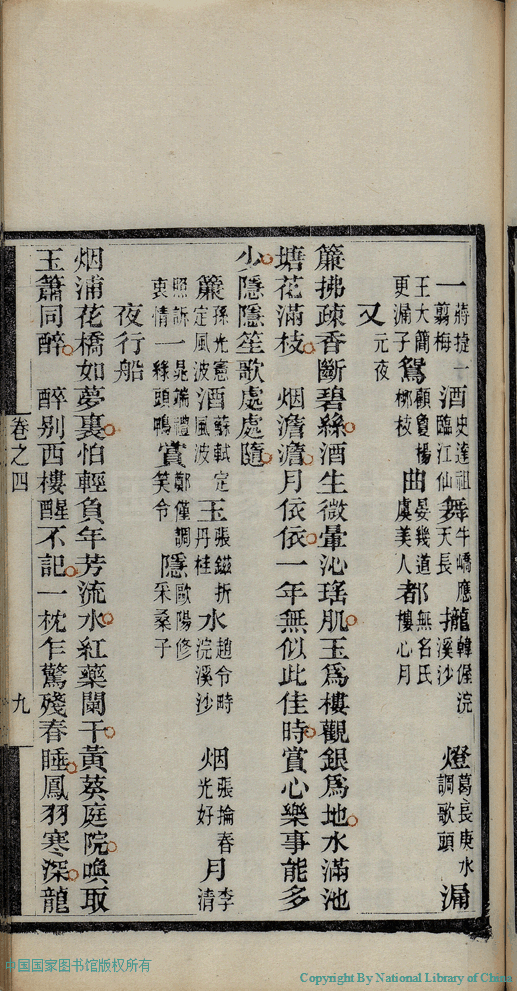 一蔣捷一翦梅酒史達祖臨江仙舞牛嶠應天長攏韓偓浣溪沙 燈葛長庚水調歌頭 漏
王大簡更漏子鴛顧敻楊柳枝曲晏幾道虞美人都無名氏樓心月
又元夜
簾拂疎香斷碧絲酒生微暈沁瑤肌玉爲樓觀銀爲地水滿池
塘花滿枝 烟澹澹月依依一年無似此佳時賞心樂事能多
少隱隱笙歌處處隨
簾孫光憲定風波酒蘇軾定風波 玉張鎡折丹桂 水趙令畤浣溪沙 烟張掄春光好 月李清
照訴衷情一晁端禮綠頭鴨賞鄭僅調笑令隱歐陽修采桑子
夜行船
烟浦花橋如夢裏怕輕負年芳流水紅藥闌干黃葵庭院喚取
玉簫同醉 醉别西樓醒不記一枕乍驚殘春睡鳳羽寒深龍
卷之四 九
中国国家图书馆版权所有
Copyright By National Library of China